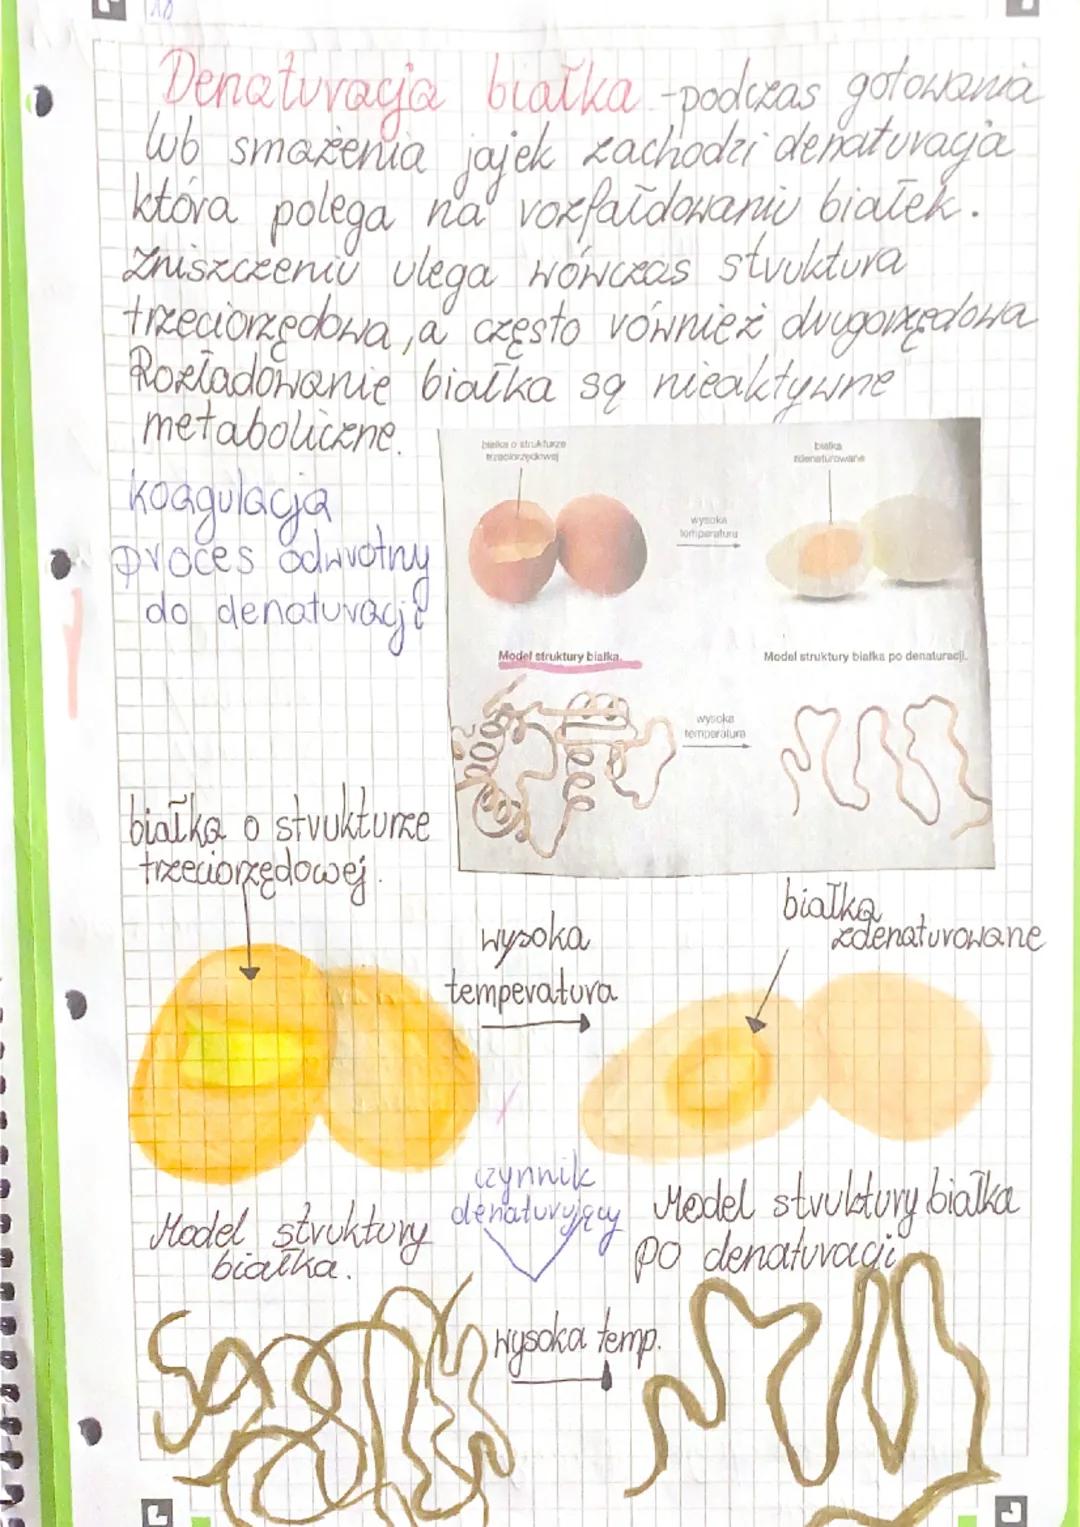 Denaturacja białka - podczas gotowania
lub smażenia jajek zachodzi denaturacja
która polega na rozfałdowaniu białek.
Zniszczeniu ulega wówczas struktura
trzeciorzędowa, a często również drugorzędowa
Rozładowanie białka są nieaktywne
metaboliczne.
białka o strukturze
trzeciorzędowej
białka
zdenaturowane
wysoka
temperatura
koagulacja
proces odwrotny
do denaturacji
Model struktury białka.
Model struktury białka po denaturacji.
wysoka
temperatura
białka o strukturze
trzeciorzędowej.
wysoka
temperatura
białka
zdenaturowane
czynnik
denaturujący
Model struktury
białka.
Model struktury białka
po denaturacji
wysoka temp.